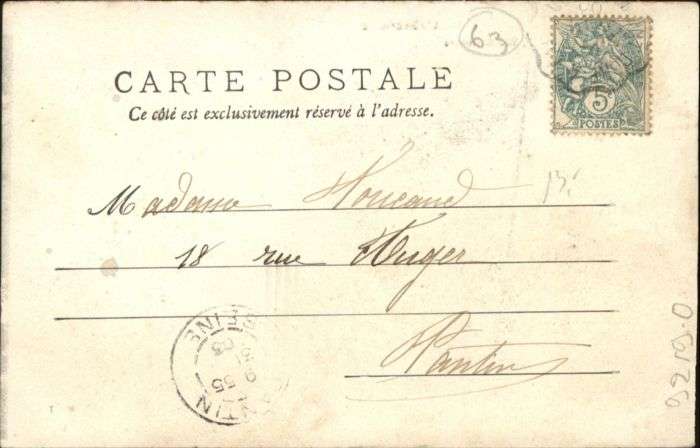 63
5
POSTES
CARTE POSTALE
Ce côté est exclusivement réservé à l'adresse.
Madame
18 rue Auger
Pantin
PANTIN
SEINE